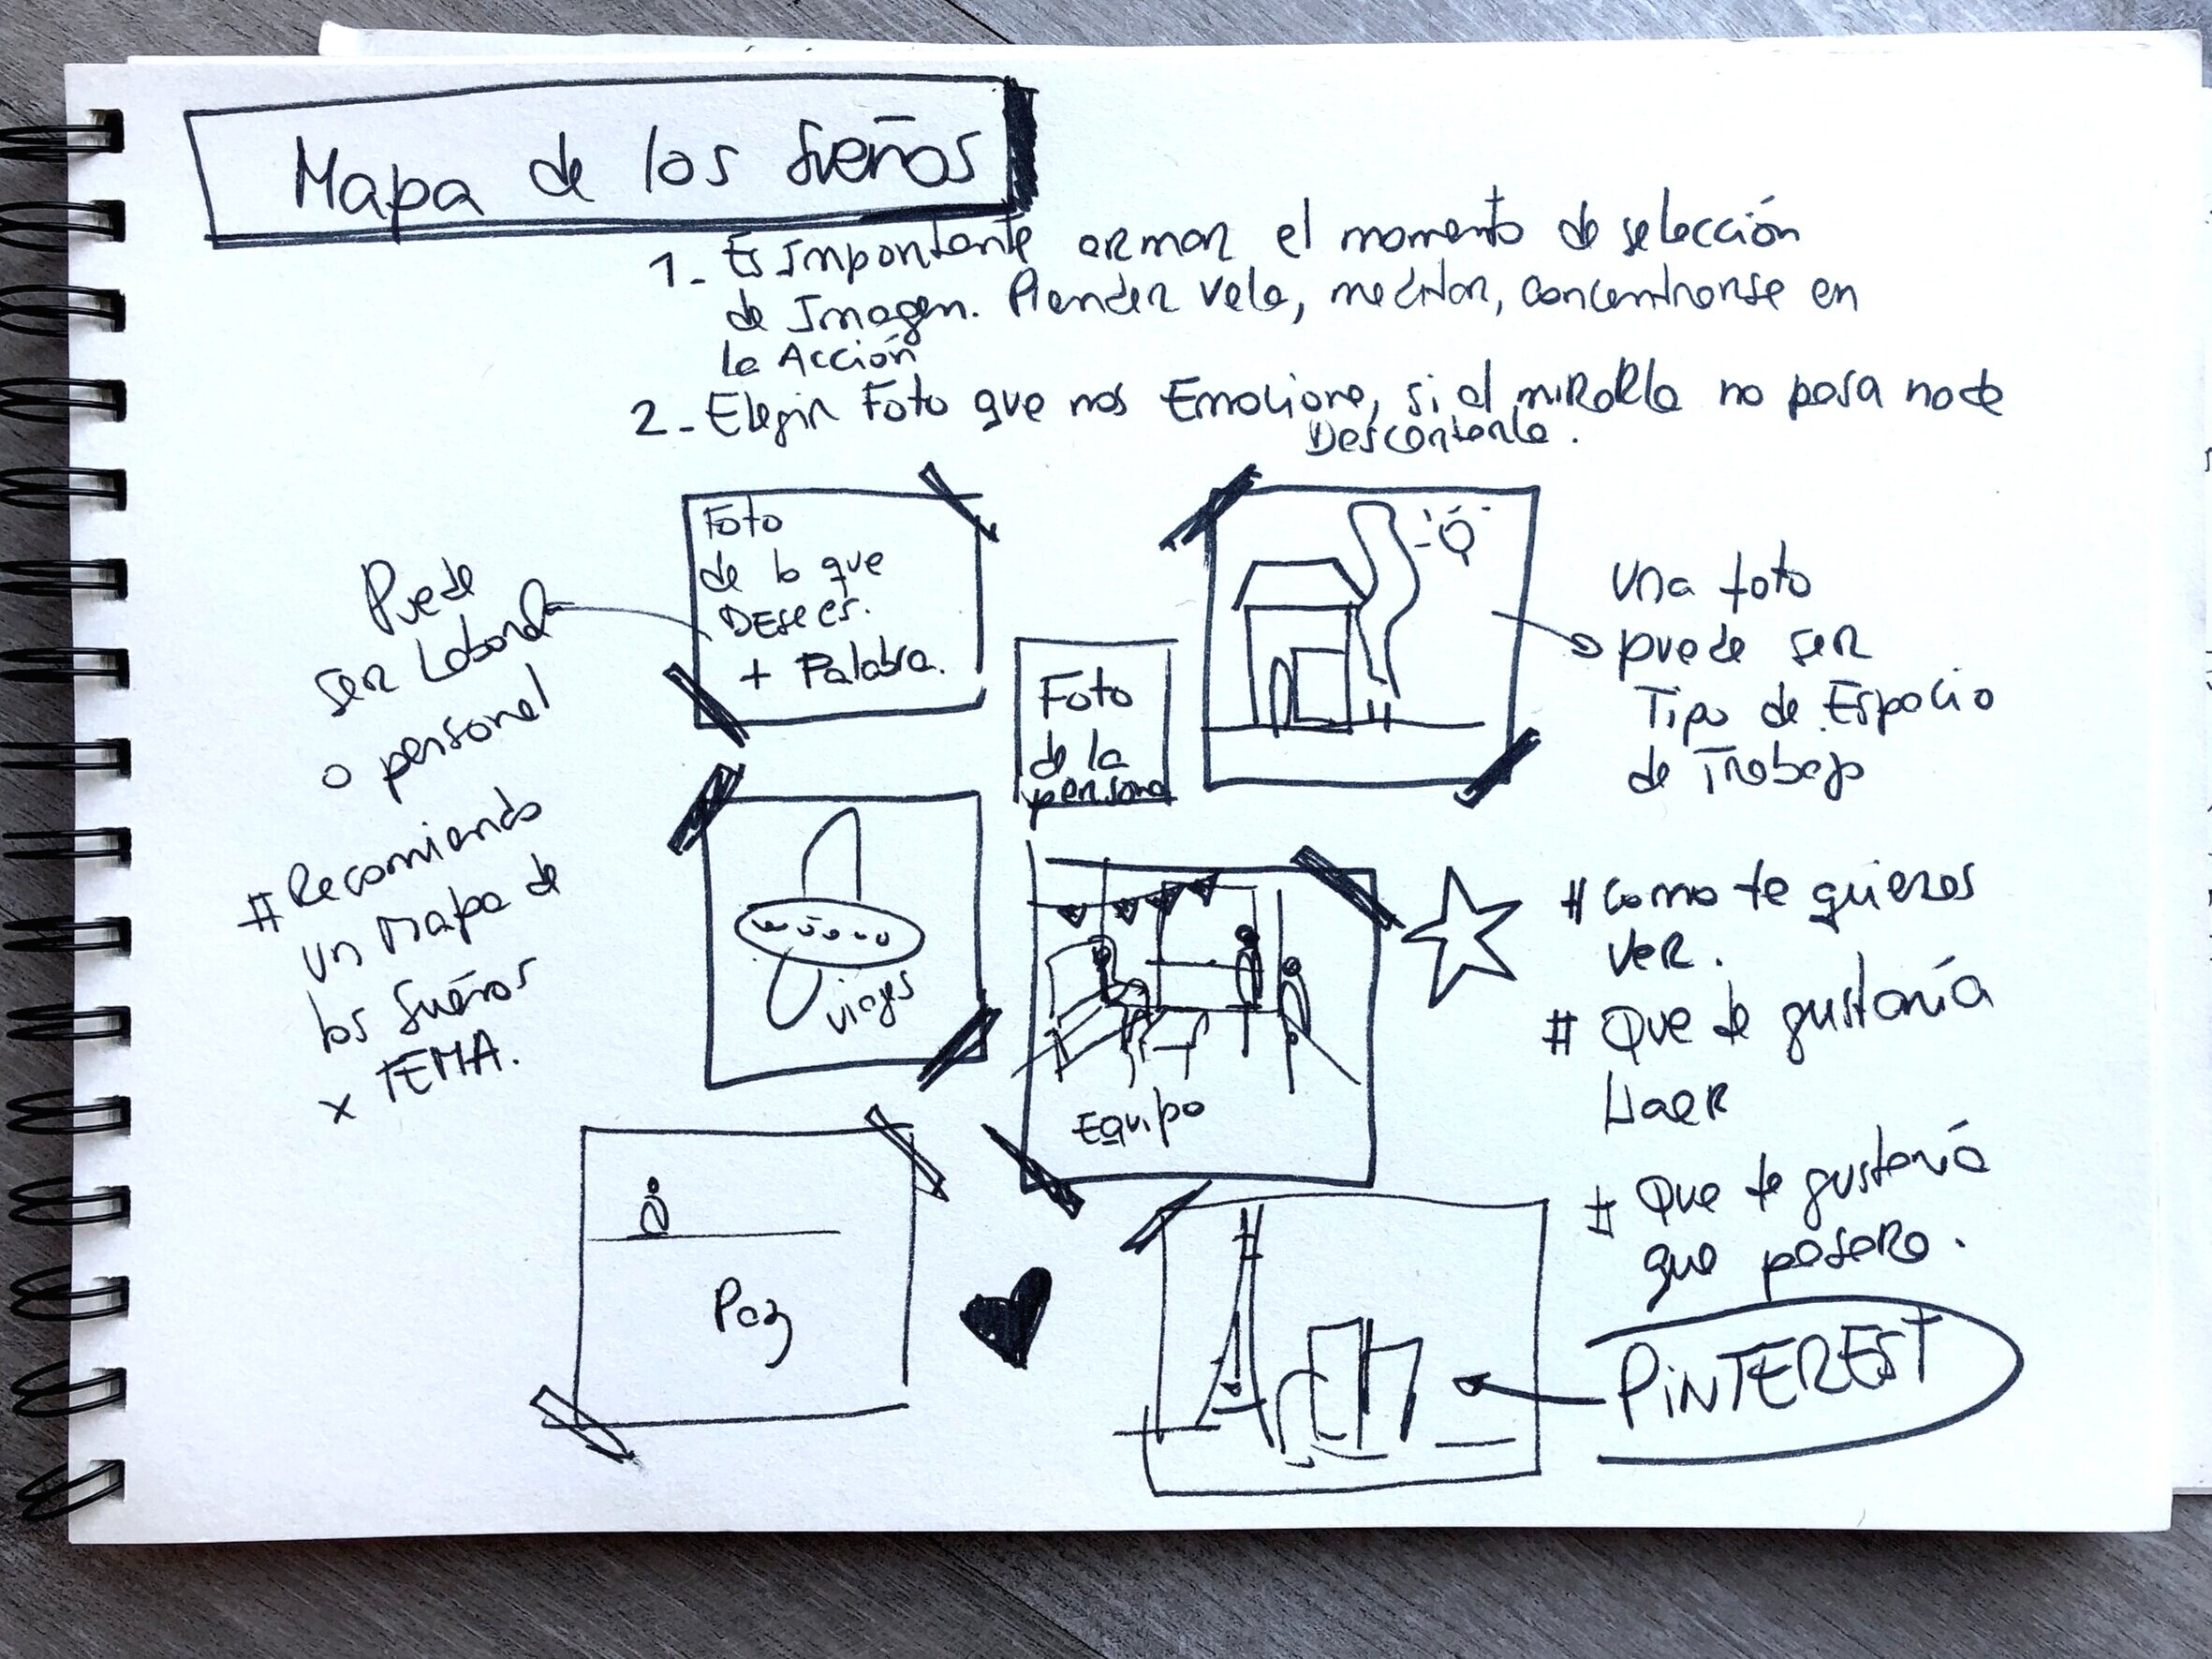 Mapa de los Sueños
1. Es Importante armar el momento de selección
de Imagen. Prender vela, meditar, concentrarse en
la Acción
2. Elegir Foto que nos Emocione, si al mirarla no pasa nada
Descartarla.
Foto
de lo que
Desees.
+ Palabra.
Puede
ser Laboral
o personal
# Recomiendo
un Mapa de
los Sueños
x TEMA.
Foto
de la
persona
Una foto
puede ser
Tipo de Espacio
de Trabajo
viajes
Equipo
# Como te quieres
ver.
# Que te gustaría
# Que te gustaría
que pasara.
Paz
PiNTEREST